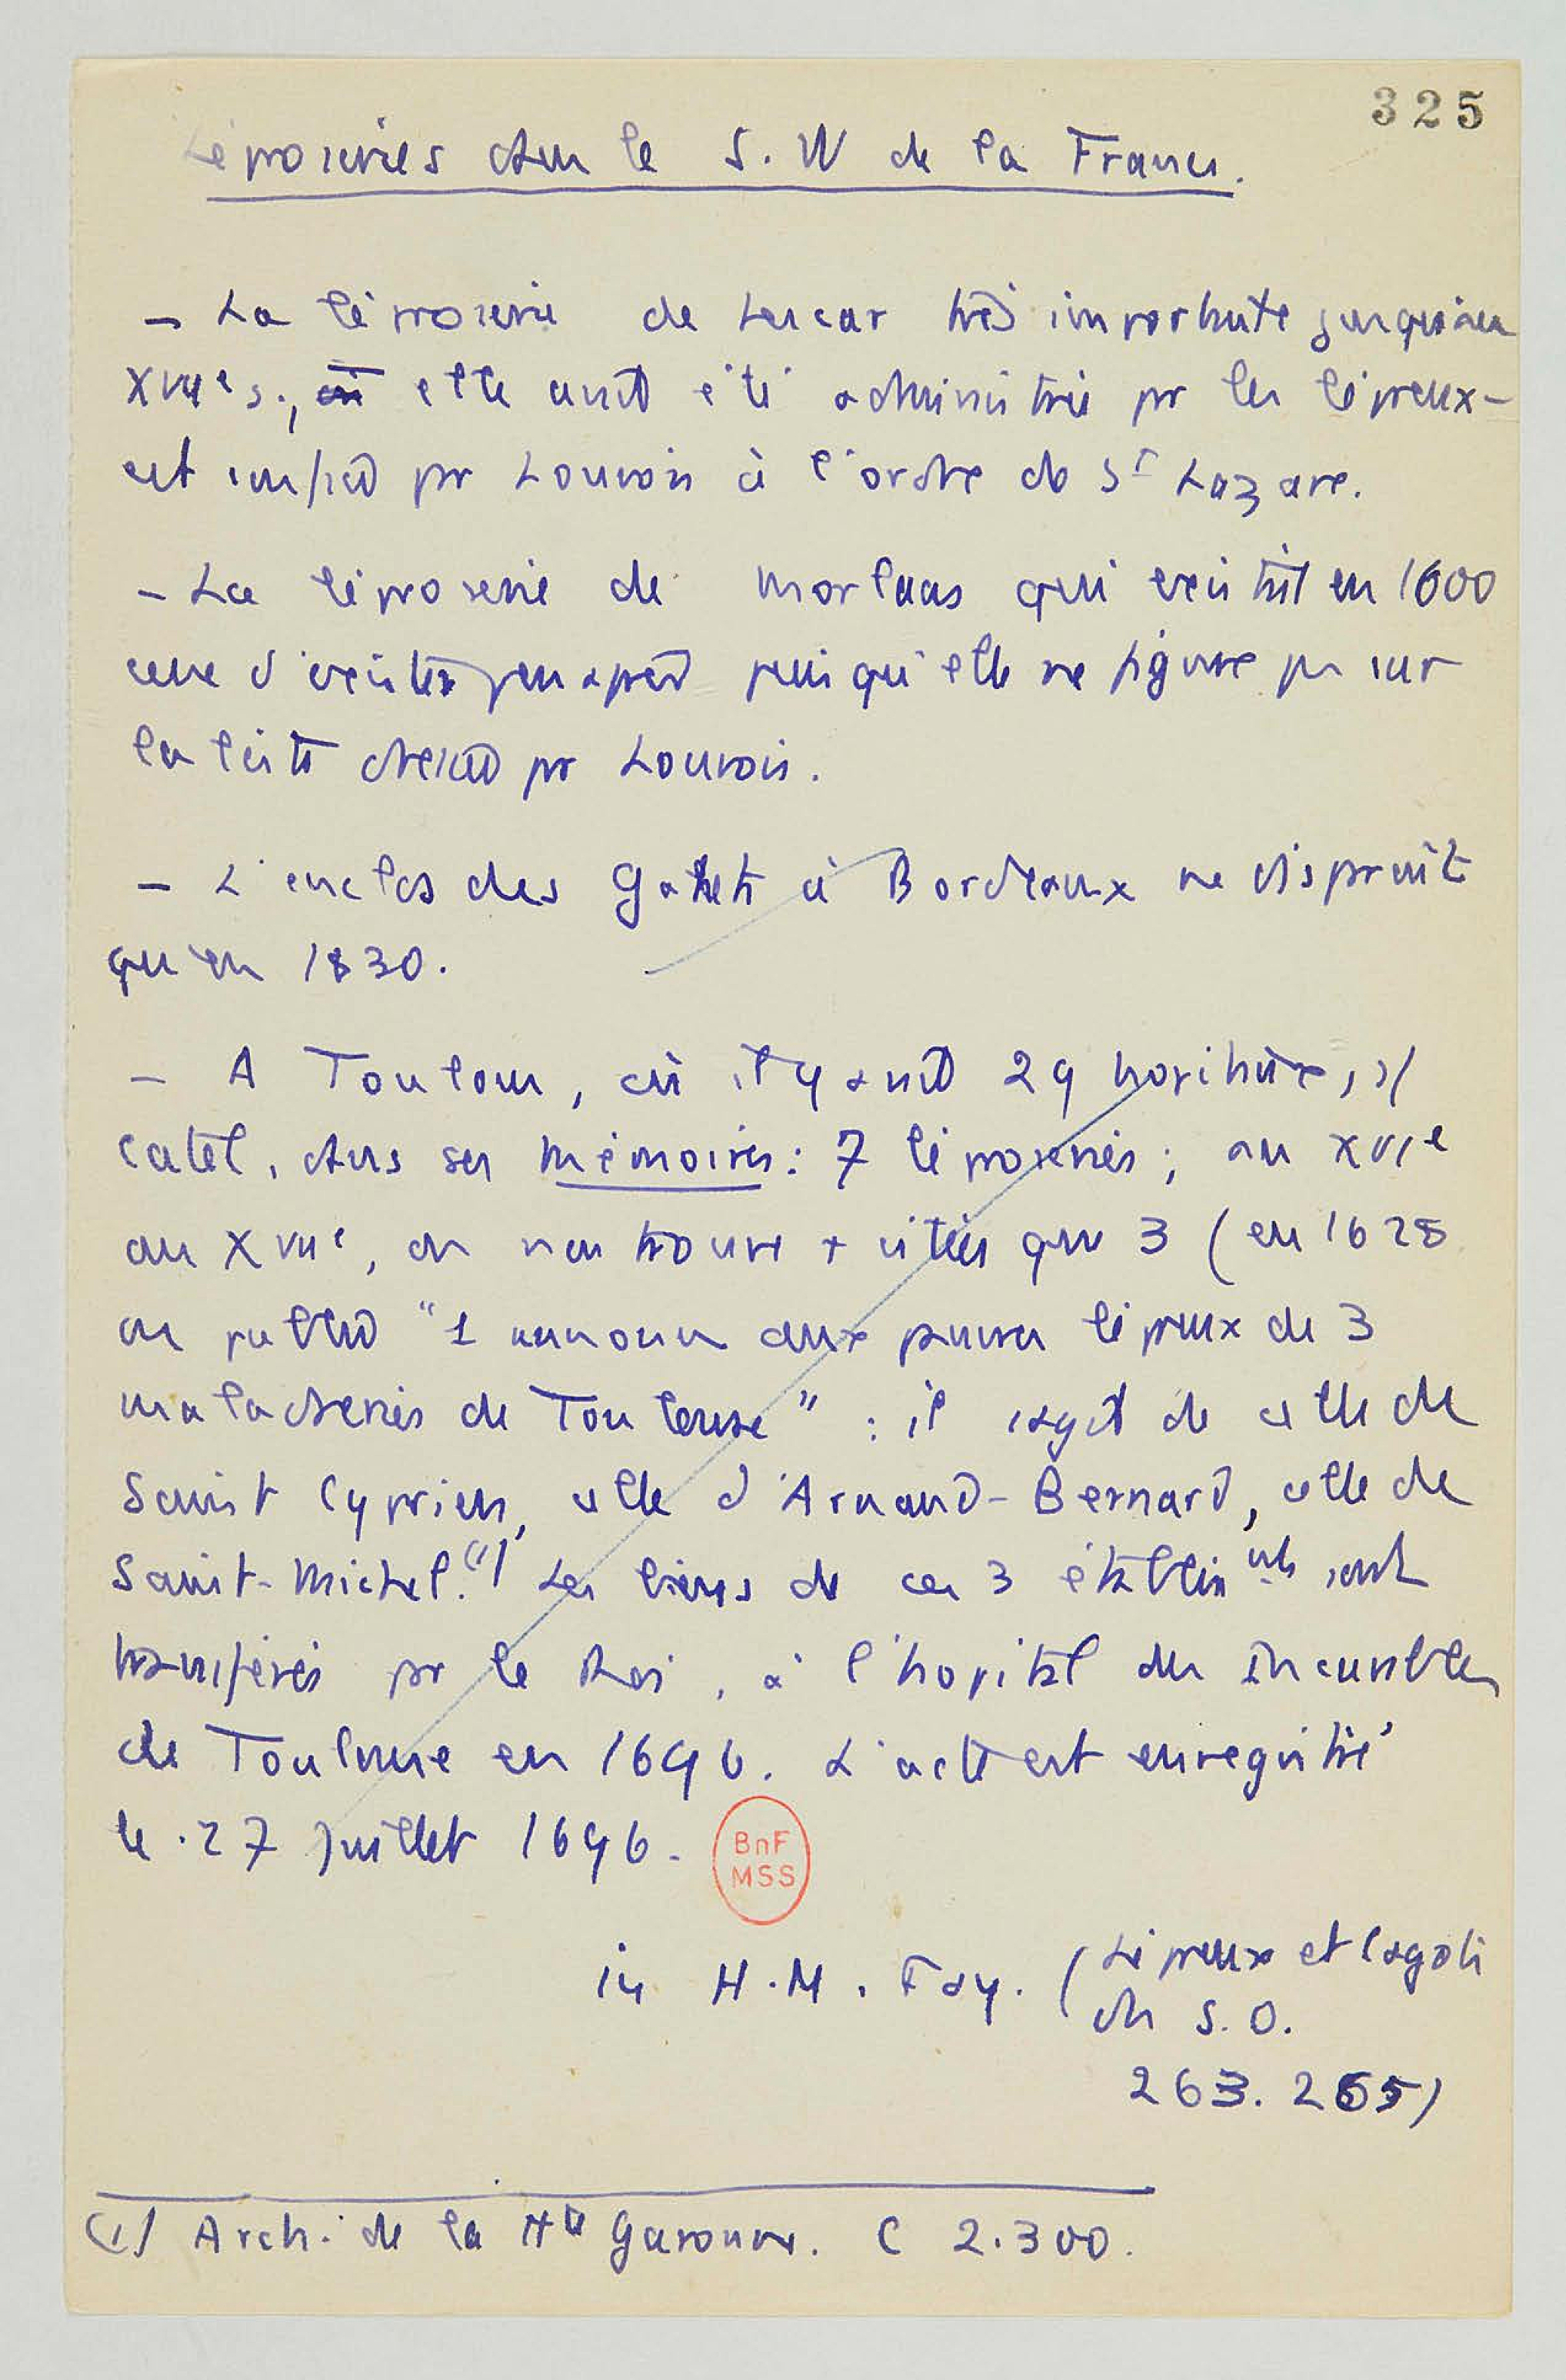 325
Léproseries dans le S.W de la France.
- La léproserie de Lescar très importante jusqu'au
XVIIe s., où elle avait été administrée par les lépreux -
est confiée par Louvois à l'ordre de St Lazare.
- La léproserie de Morlaas qui existait en 1600
cesse d'exister peu après puisqu'elle ne figure pas sur
la liste dressée par Louvois.
- L'enclos des Gahets à Bordeaux ne disparaît
qu'en 1830.
- A Toulouse, où il y avait 29 hôpitaux, s/
Catel, dans ses Mémoires : 7 léproseries ; au XVIe
au XVIIe, on n'en trouve + citées que 3 (en 1628
on publie "1 annonce aux pauvres lépreux de 3
maladreries de Toulouse" : il s'agit de celle de
Saint Cyprien, celle d'Arnaud-Bernard, celle de
Saint-Michel.(1) Les biens de ces 3 établiss.nts sont
transférés par le Roi, à l'hopital des Incurables
de Toulouse en 1696. L'acte est enregistré
le 27 juillet 1696.
BnF
MSS
in H.M. Fay. (Lépreux et Cagots
du S.O.
263. 265)
(1) Arch. de la Hte Garonne. C 2.300.